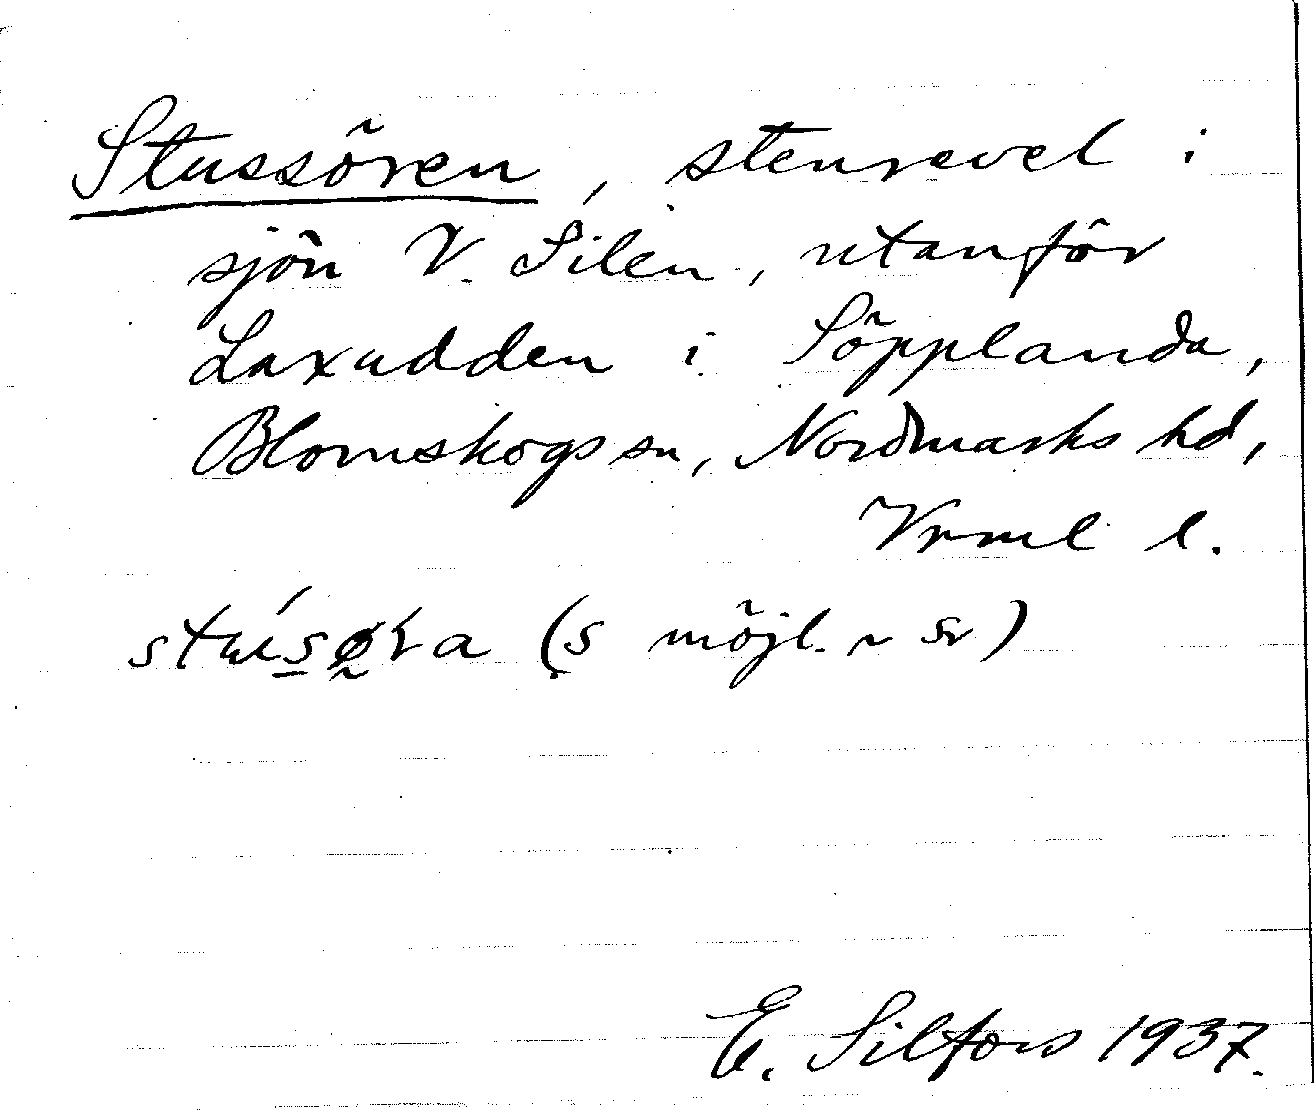 Stussören, stenrevel i
sjön V. Silen, utanför
Laxudden i Söpplanda,
Blomskogs sn, Nordmarks hd,
Vrml l.
(s möjl. ~ sr)
E. Silfors 1937.